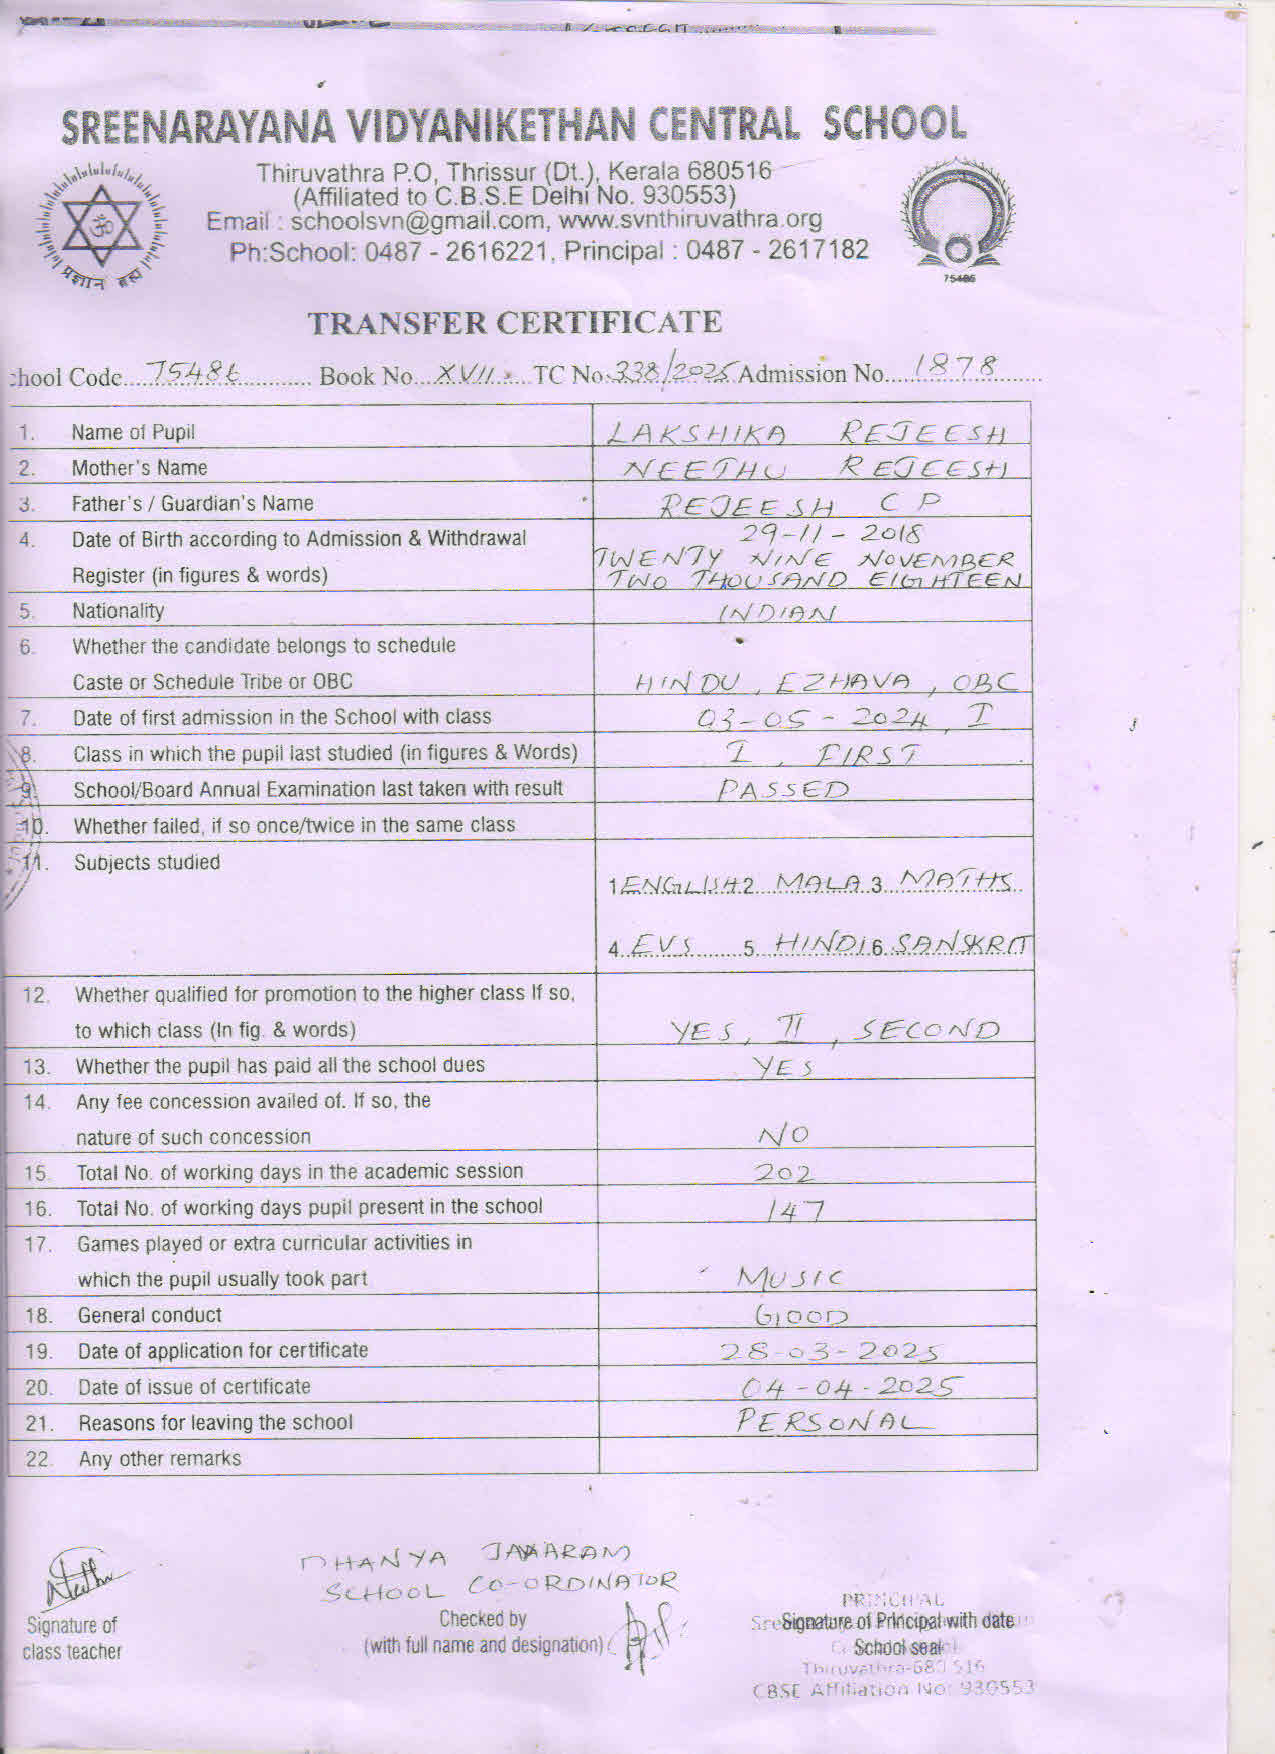 SREENARAYANA VIDYANIKETHAN CENTRAL SCHOOL
Thiruvathra P.O, Thrissur (Dt.), Kerala 680516
(Affiliated to C.B.S.E Delhi No. 930553)
Email : schoolsvn@gmail.com, www.svnthiruvathra.org
Ph:School: 0487 - 2616221, Principal : 0487 - 2617182
प्रज्ञानं ब्रह्म
75486
TRANSFER CERTIFICATE
chool Code....75486............ Book No...XVII......TC No.338/2025 Admission No.....1878.......
1. Name of Pupil LAKSHIKA REJEESH
2. Mother's Name NEETHU REJEESH
3. Father's / Guardian's Name REJEESH C P
4. Date of Birth according to Admission & Withdrawal 29-11-2018
Register (in figures & words) TWENTY NINE NOVEMBER
TWO THOUSAND EIGHTEEN
5. Nationality INDIAN
6. Whether the candidate belongs to schedule
Caste or Schedule Tribe or OBC HINDU, EZHAVA, OBC
7. Date of first admission in the School with class 03-05-2024, I
8. Class in which the pupil last studied (in figures & Words) I, FIRST
9. School/Board Annual Examination last taken with result PASSED
10. Whether failed, if so once/twice in the same class
11. Subjects studied
1 ENGLISH 2 MALA 3 MATHS
4 EVS 5 HINDI 6 SANSKRIT
12. Whether qualified for promotion to the higher class If so,
to which class (In fig. & words) YES, II, SECOND
13. Whether the pupil has paid all the school dues YES
14. Any fee concession availed of. If so, the
nature of such concession NO
15. Total No. of working days in the academic session 202
16. Total No. of working days pupil present in the school 147
17. Games played or extra curricular activities in
which the pupil usually took part MUSIC
18. General conduct GOOD
19. Date of application for certificate 28-03-2025
20. Date of issue of certificate 04-04-2025
21. Reasons for leaving the school PERSONAL
22. Any other remarks
DHANYA JAYARAM
SCHOOL CO-ORDINATOR
Signature of
class teacher
Checked by
(with full name and designation)
PRINCIPAL
Signature of Principal with date
School seal
Thiruvathra-680 516
CBSE Affiliation No: 930553